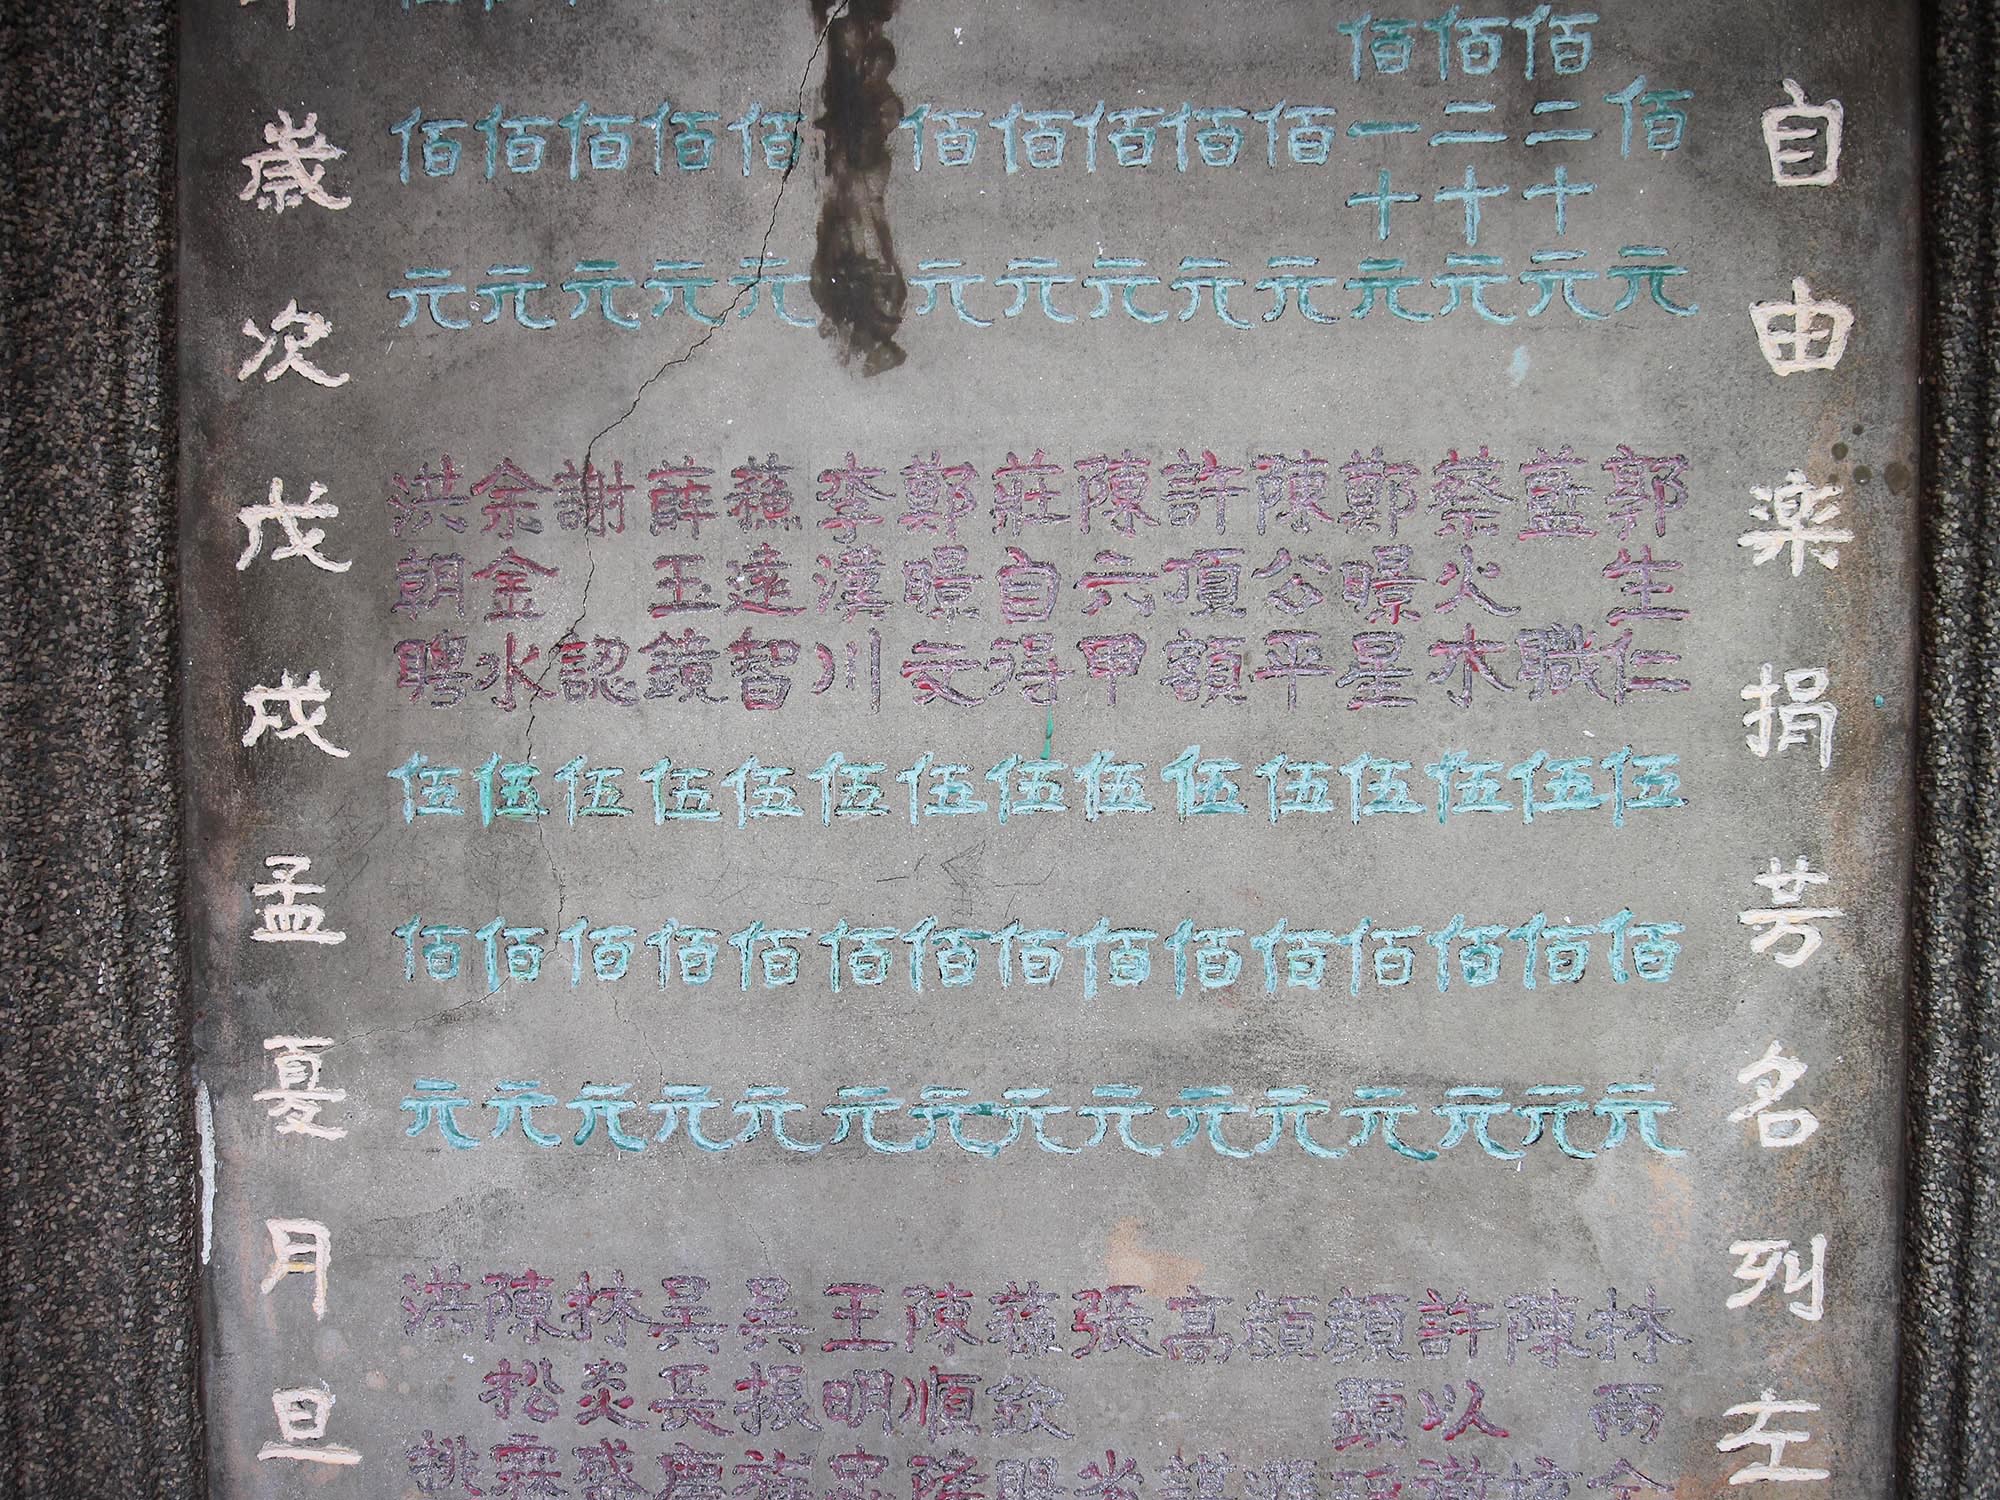 自由楽捐芳名列左
佰元
佰二十元
佰二十元
佰一十元
佰元
佰元
佰元
佰元
佰元
佰元
佰元
佰元
佰元
佰元
郭生仁 伍佰元
藍職 伍佰元
蔡火木 伍佰元
鄭暻星 伍佰元
陳公平 伍佰元
許頂額 伍佰元
陳六甲 伍佰元
莊自得 伍佰元
鄭暻 伍佰元
李漢川 伍佰元
蘇遠智 伍佰元
薛玉鏡 伍佰元
謝認 伍佰元
余金水 伍佰元
洪朝聘 伍佰元
林雨
陳
許以
顏顯
顏
高
張
蘇欽
陳順隆
王明忠
吳振
吳長
林炎
陳松霖
洪桃
歲次戊戌孟夏月旦